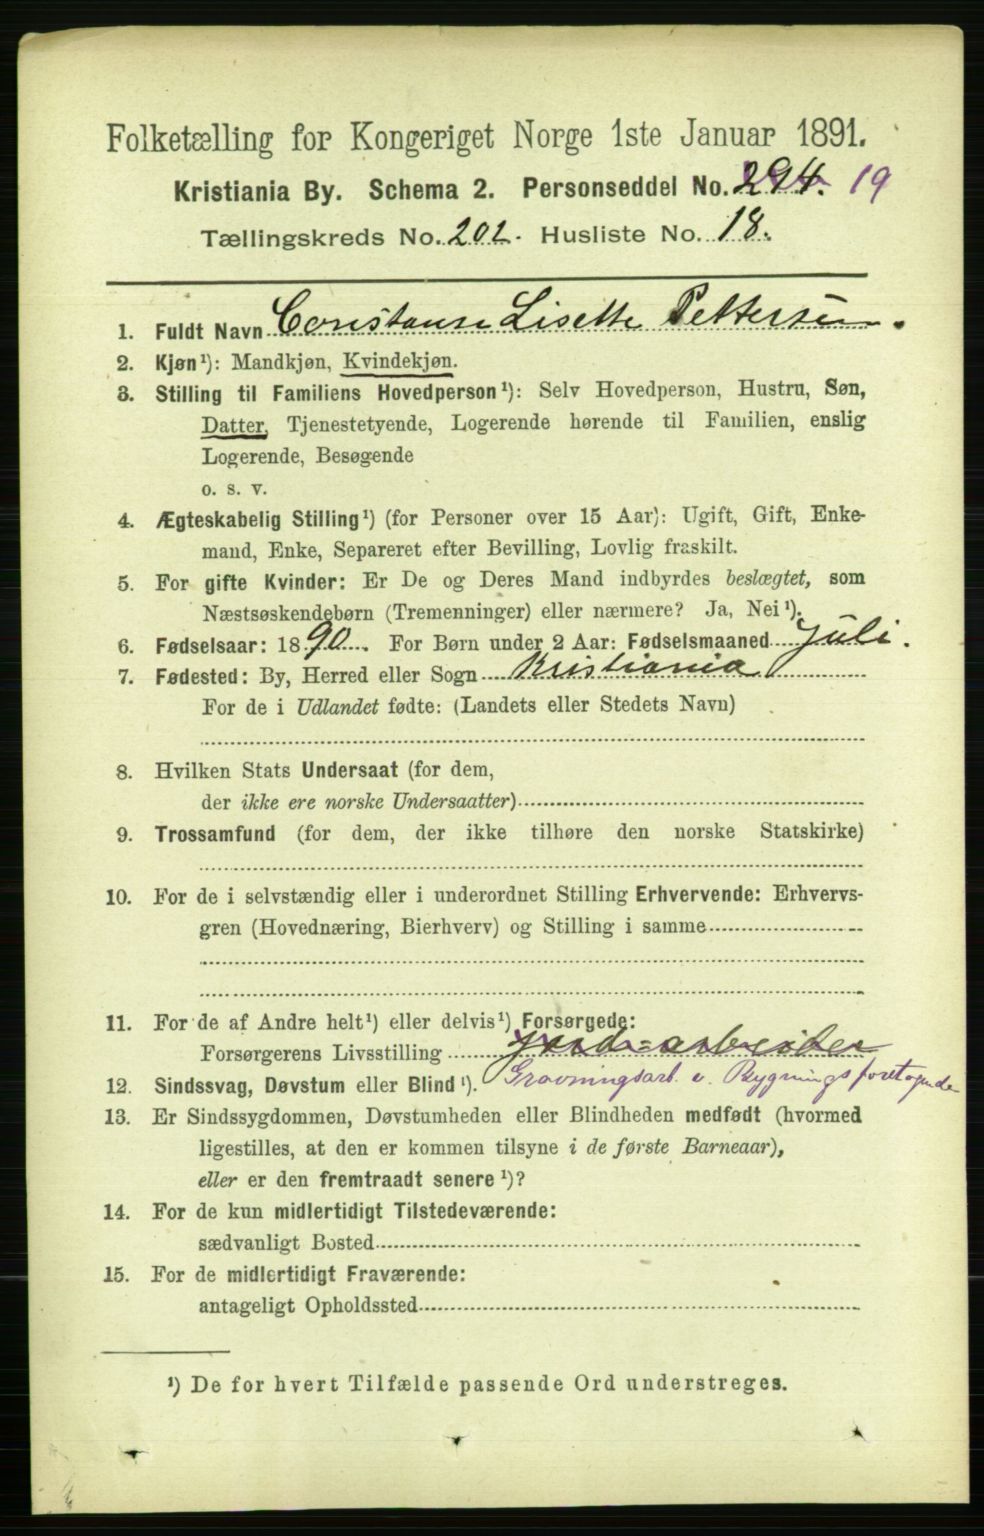 Folketælling for Kongeriget Norge 1ste Januar 1891.
Kristiania By. Schema 2. Personseddel No. 294. 19
Tællingskreds No. 202. Husliste No. 18.
1. Fuldt Navn Constanse Lisette Pettersen.
2. Kjøn¹): Mandkjøn, Kvindekjøn.
3. Stilling til Familiens Hovedperson¹): Selv Hovedperson, Hustru, Søn,
Datter, Tjenestetyende, Logerende hørende til Familien, enslig
Logerende, Besøgende
o. s. v.
4. Ægteskabelig Stilling¹) (for Personer over 15 Aar): Ugift, Gift, Enke-
mand, Enke, Separeret efter Bevilling, Lovlig fraskilt.
5. For gifte Kvinder: Er De og Deres Mand indbyrdes beslægtet, som
Næstsøskendebørn (Tremenninger) eller nærmere? Ja, Nei¹).
6. Fødselsaar: 1890. For Børn under 2 Aar: Fødselsmaaned Juli.
7. Fødested: By, Herred eller Sogn Kristiania
For de i Udlandet fødte: (Landets eller Stedets Navn)
8. Hvilken Stats Undersaat (for dem,
der ikke ere norske Undersaatter)
9. Trossamfund (for dem, der ikke tilhøre den norske Statskirke)
10. For de i selvstændig eller i underordnet Stilling Erhvervende: Erhvervs-
gren (Hovednæring, Bierhverv) og Stilling i samme
11. For de af Andre helt¹) eller delvis¹) Forsørgede:
Forsørgerens Livsstilling Jord=arbeider
12. Sindssvag, Døvstum eller Blind¹). Gravningsarb. v. Bygningsforetagende
13. Er Sindssygdommen, Døvstumheden eller Blindheden medfødt (hvormed
ligestilles, at den er kommen tilsyne i de første Barneaar),
eller er den fremtraadt senere¹)?
14. For de kun midlertidigt Tilstedeværende:
sædvanligt Bosted
15. For de midlertidigt Fraværende:
antageligt Opholdssted
¹) De for hvert Tilfælde passende Ord understreges.